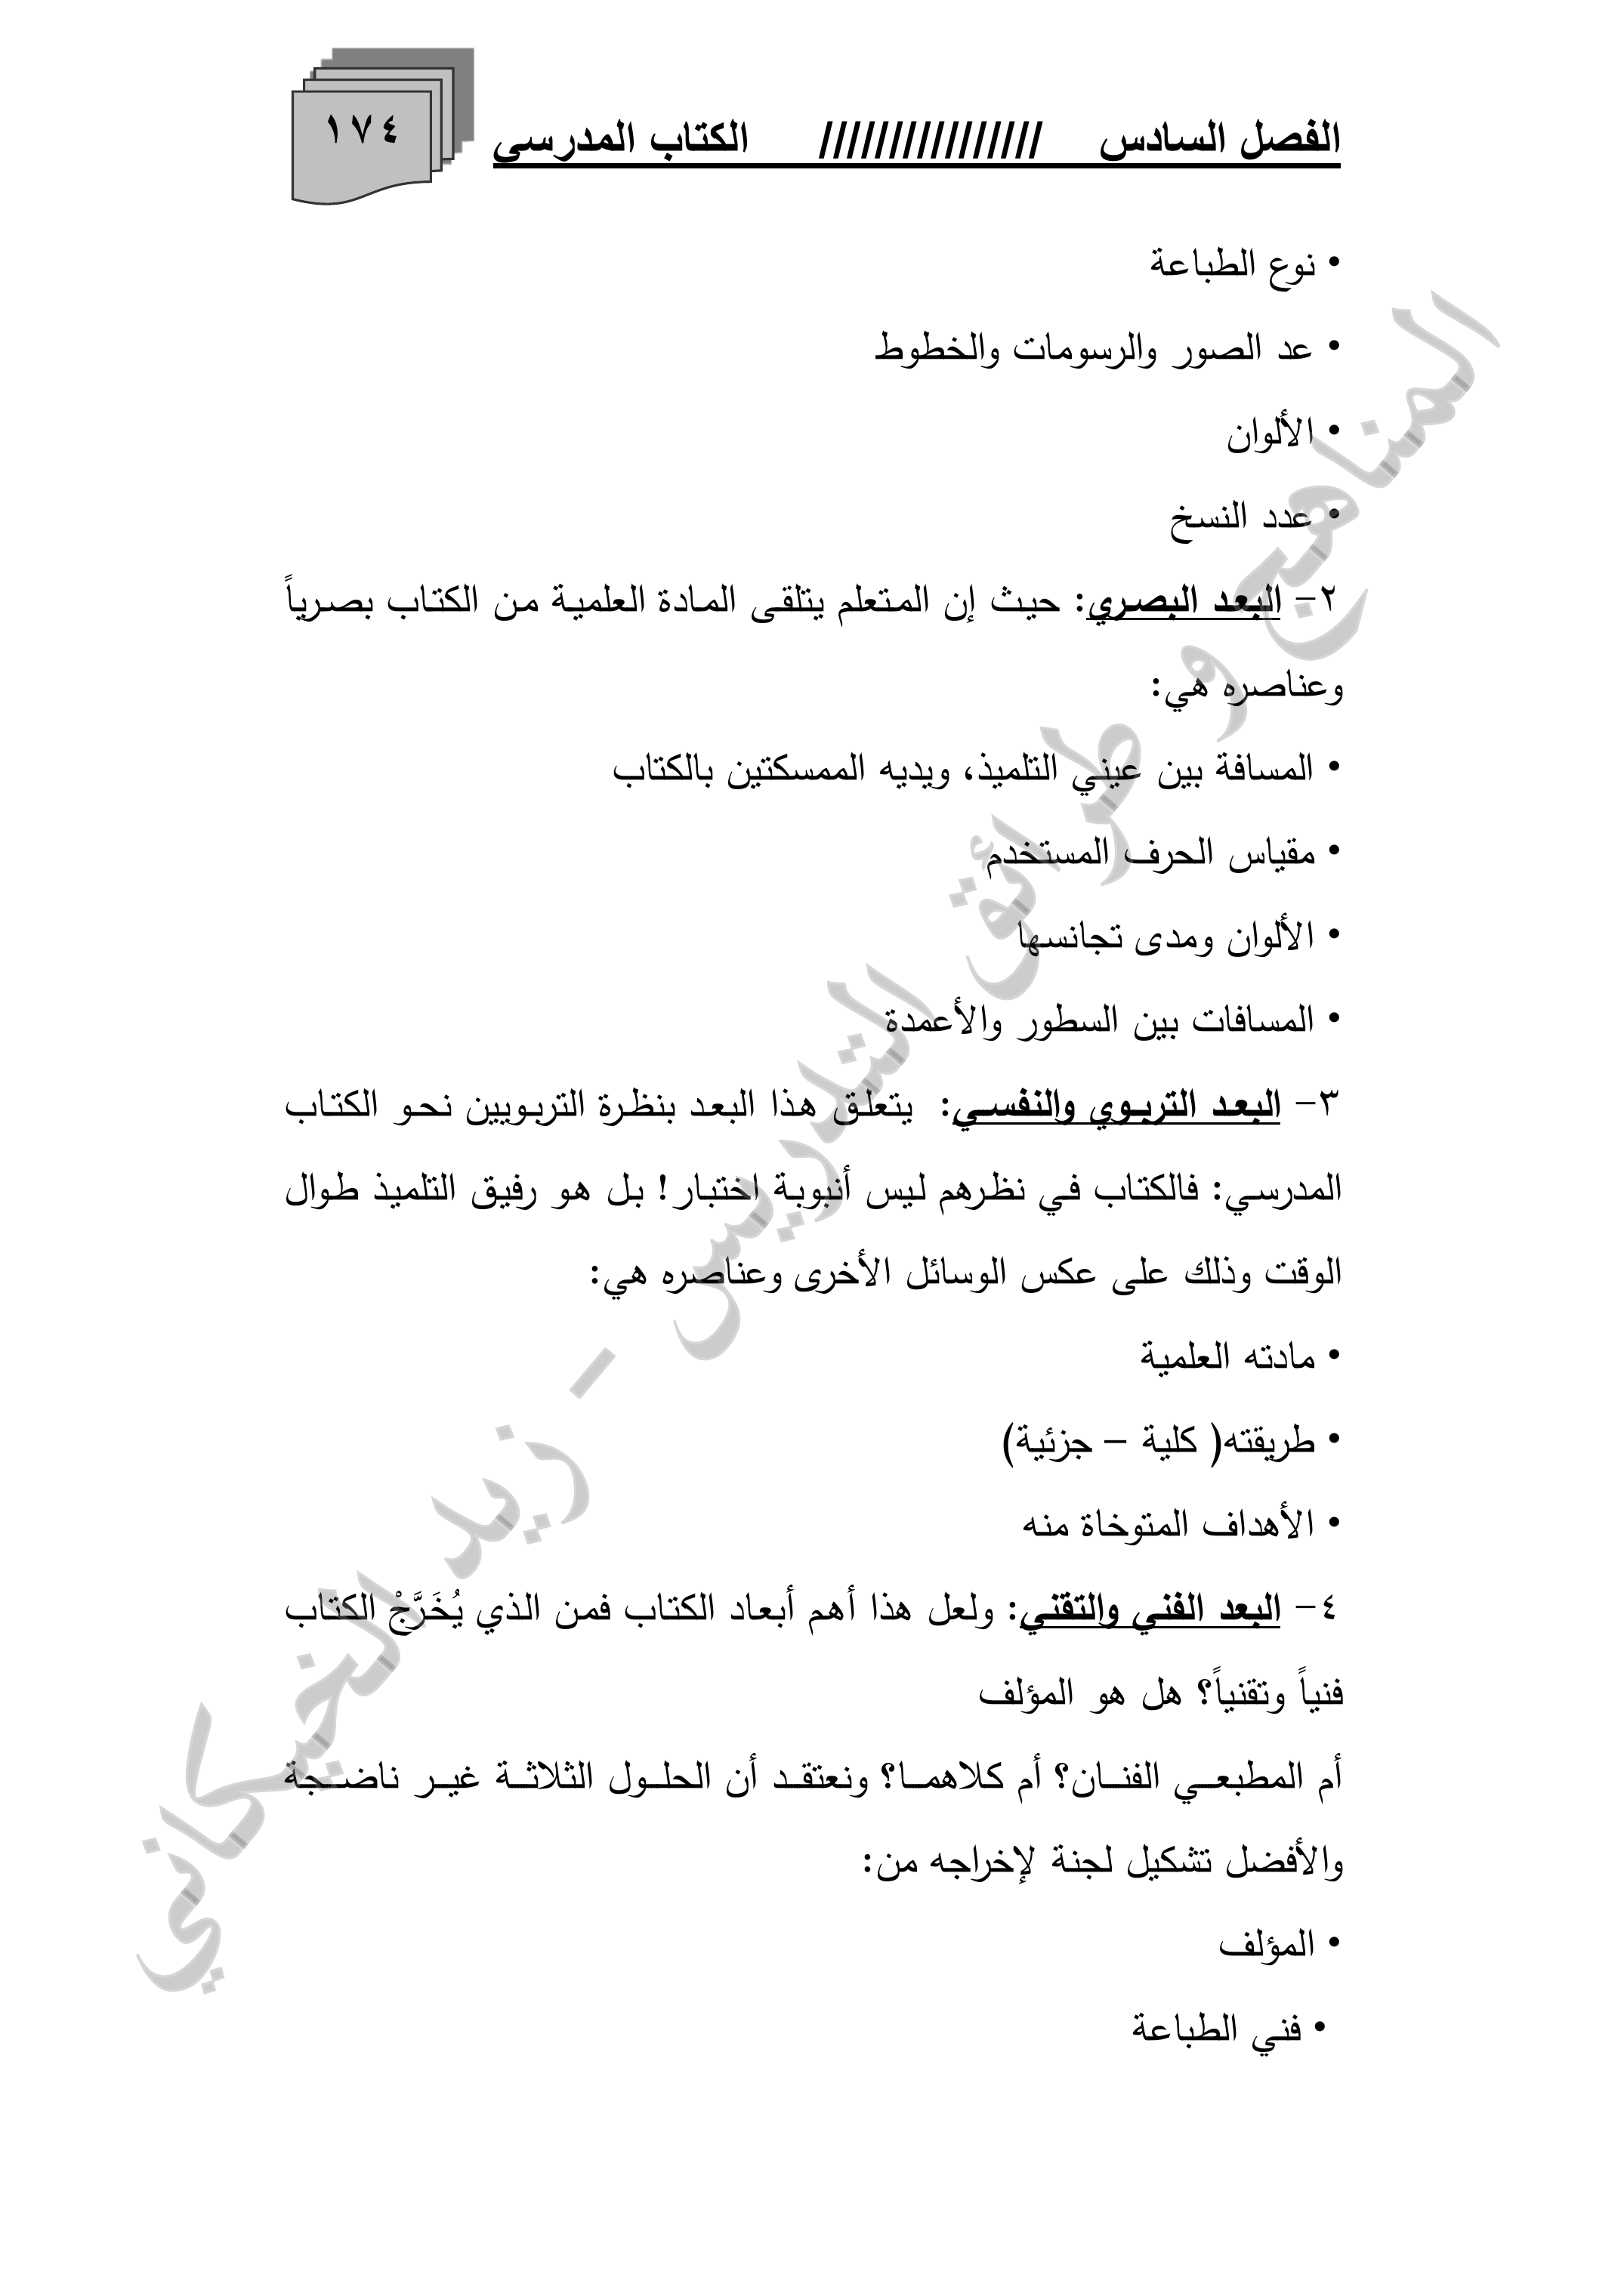 الفصل السادس //////////////// الكتاب المدرسي
١٧٤
• نوع الطباعة
• عد الصور والرسومات والخطوط
• الألوان
• عدد النسخ
٢- البعد البصري: حيث إن المتعلم يتلقى المادة العلمية من الكتاب بصرياً
وعناصره هي:
• المسافة بين عيني التلميذ، ويديه الممسكتين بالكتاب
• مقياس الحرف المستخدم
• الألوان ومدى تجانسها
• المسافات بين السطور والأعمدة
٣- البعد التربوي والنفسي: يتعلق هذا البعد بنظرة التربويين نحو الكتاب
المدرسي: فالكتاب في نظرهم ليس أنبوبة اختبار! بل هو رفيق التلميذ طوال
الوقت وذلك على عكس الوسائل الأخرى وعناصره هي:
• مادته العلمية
• طريقته( كلية – جزئية)
• الأهداف المتوخاة منه
٤- البعد الفني والتقني: ولعل هذا أهم أبعاد الكتاب فمن الذي يُخَرَّجْ الكتاب
فنياً وتقنياً؟ هل هو المؤلف
أم المطبعي الفنان؟ أم كلاهما؟ ونعتقد أن الحلول الثلاثة غير ناضجة
والأفضل تشكيل لجنة لإخراجه من:
• المؤلف
• فني الطباعة
المناهج و طرائق التدريس - زيد الخيكاني